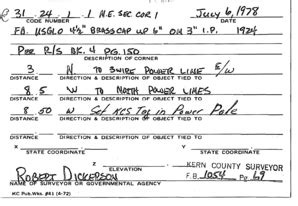 31 24 1 1 N.E. SEC COR 1 July 6, 1978
CODE NUMBER DATE
FD. USGLO 4½" BRASS CAP UP 6" ON 3" I.P. 1924
PER R/S BK. 4 PG. 150
DESCRIPTION OF CORNER
3 N TO 3 WIRE POWER LINE E/W
DISTANCE DIRECTION & DESCRIPTION OF OBJECT TIED TO
8.5 W TO NORTH POWER LINES
DISTANCE DIRECTION & DESCRIPTION OF OBJECT TIED TO
8.50 N Set KCS Tag in Power Pole
DISTANCE DIRECTION & DESCRIPTION OF OBJECT TIED TO
DISTANCE DIRECTION & DESCRIPTION OF OBJECT TIED TO
X Y
STATE COORDINATE STATE COORDINATE
Z
ELEVATION KERN COUNTY SURVEYOR
ROBERT DICKERSON F.B. 1054 Pg. 69
NAME OF SURVEYOR OR GOVERNMENTAL AGENCY
KC Pub. Wks. #41 (4-72)